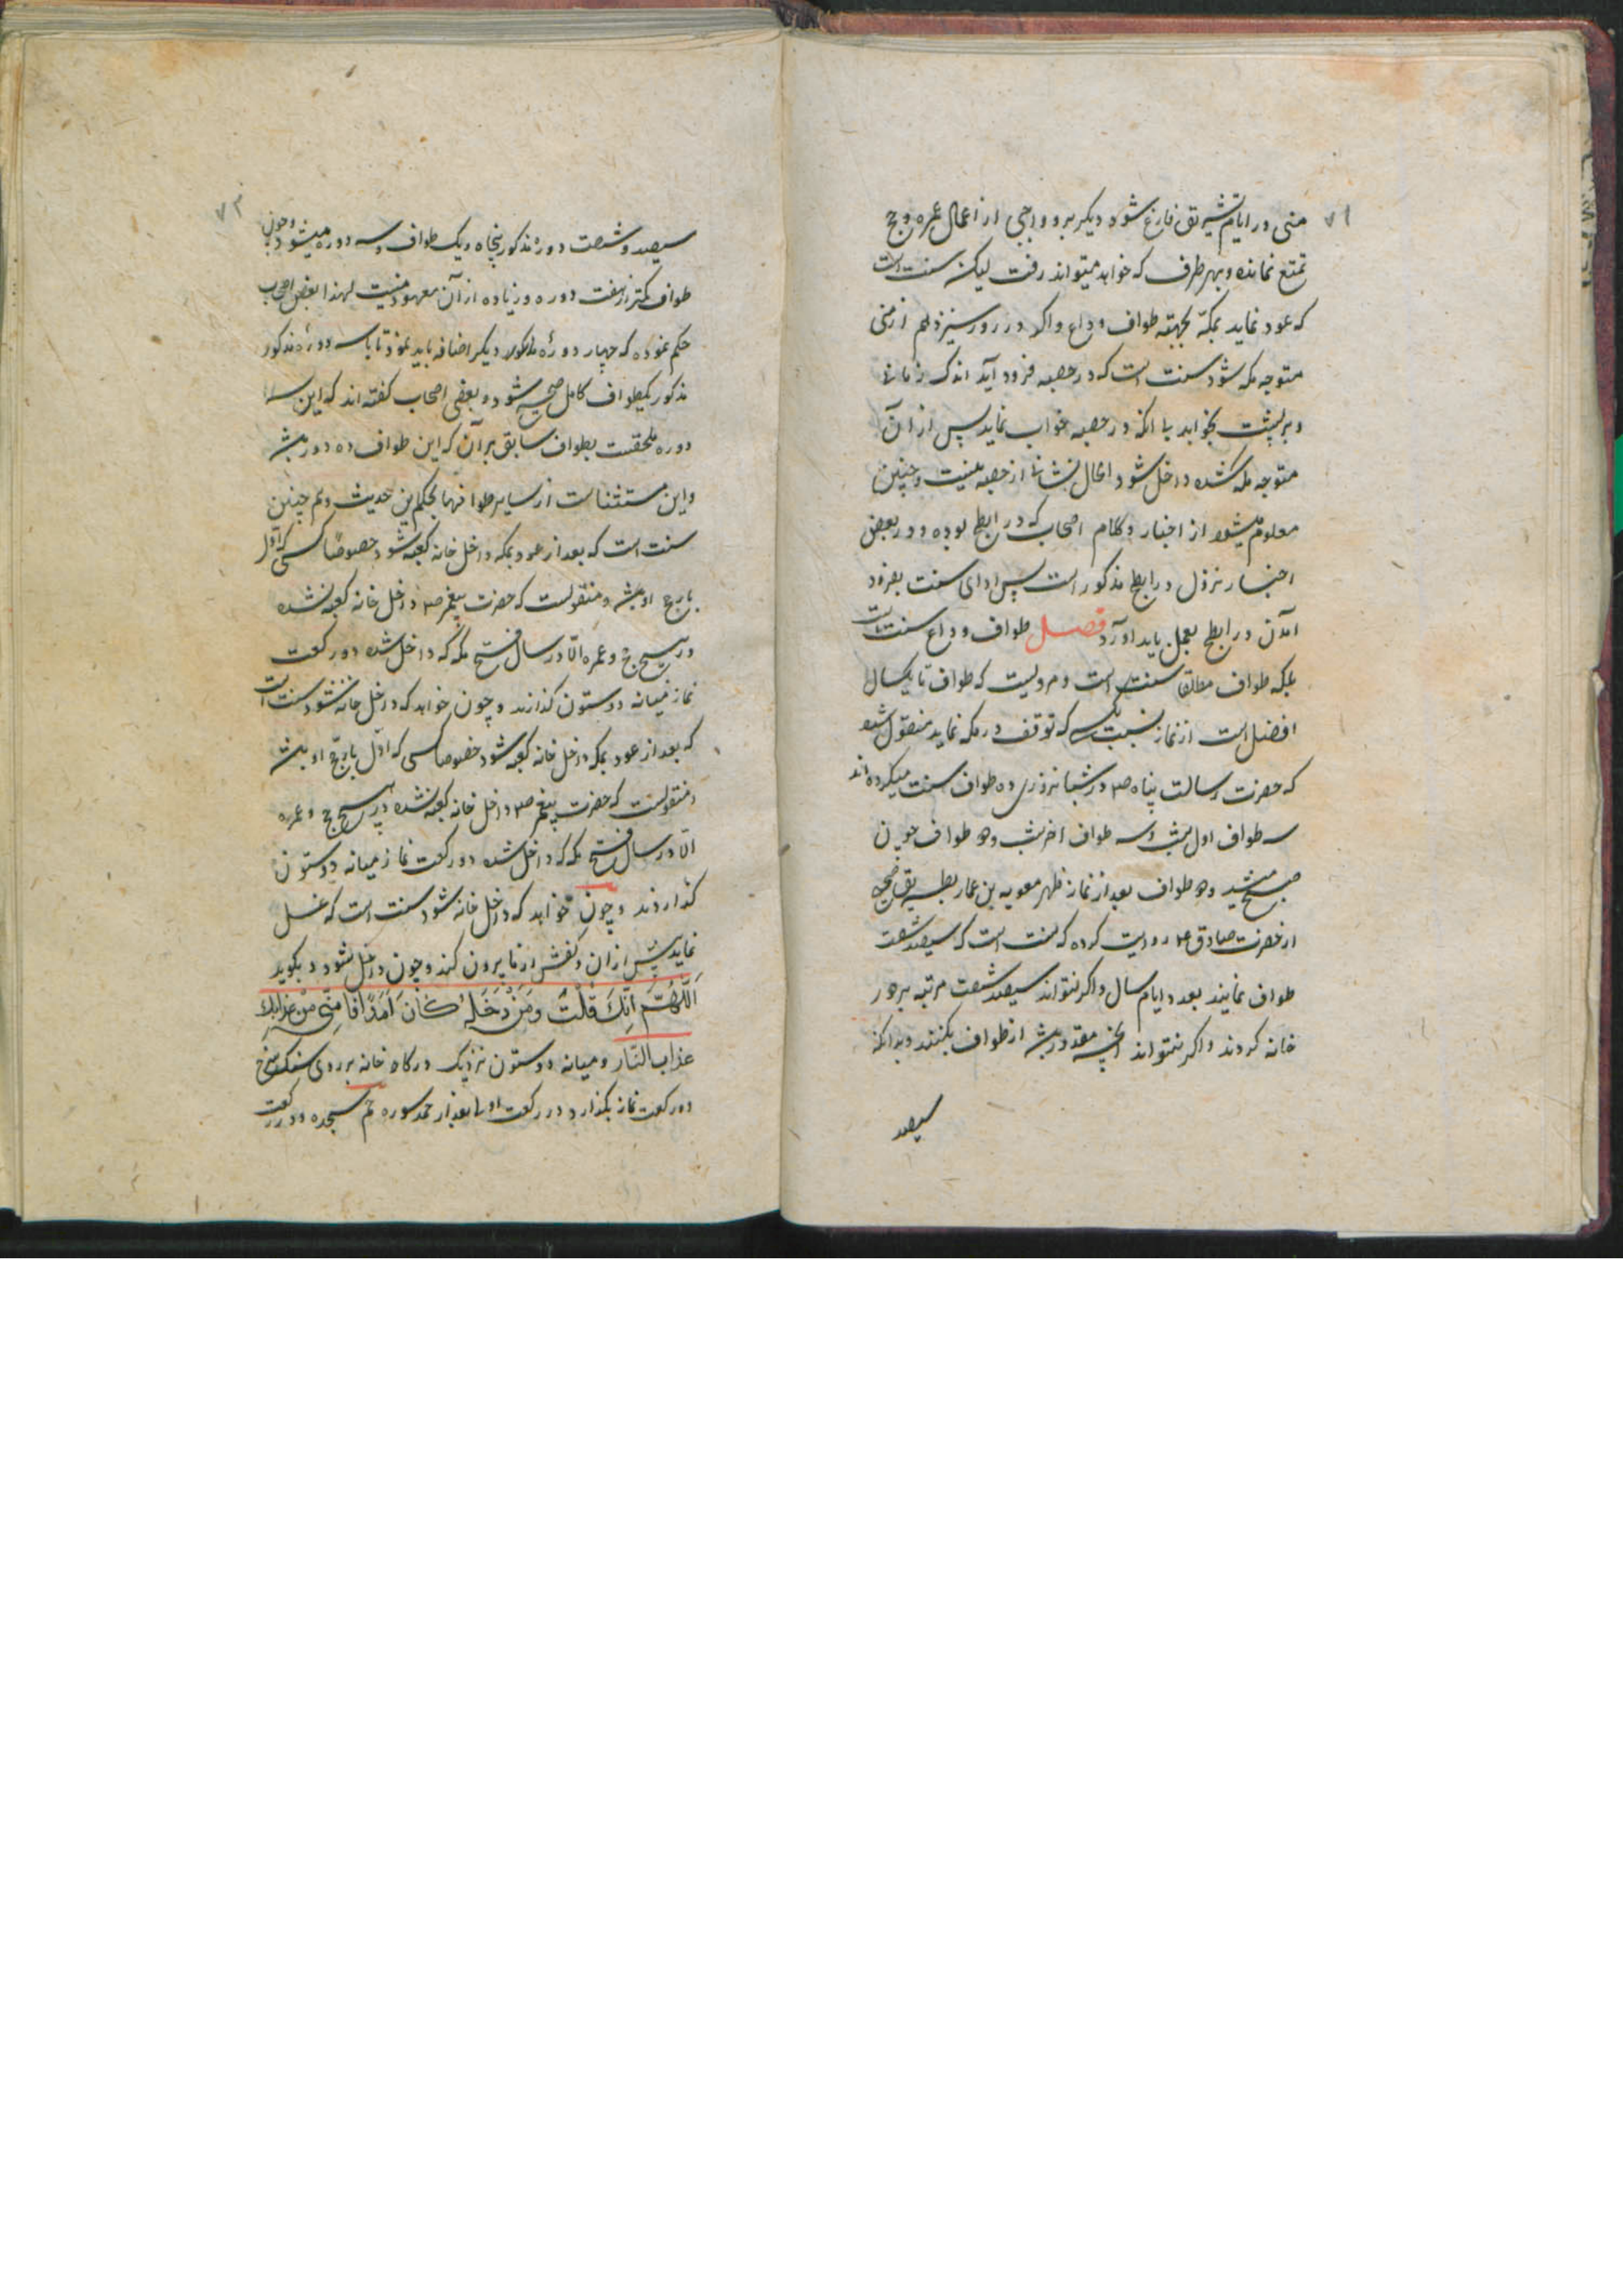 ۷۱
منی در ایام تشریق فارغ شود دیگر برو واجبی از اعمال عمره و حج
تمتع نمانده و بهر طرف که خواهد میتواند رفت لیکن سنت است
که عود نماید بمکّه بجهته طواف وداع و اگر در روز سیزدهم از منی
متوجه مکه شود سنت است که در حصبه فرود آید اندک زمانی
و بر پشت بخوابد یا انکه در حصبه خواب نماید پس از آن
متوجه مکه شده داخل شود و الحال نشانی از حصبه نیست و چنین
معلوم میشود از اخبار و کلام اصحاب که در ابطح بوده و در بعض
اخبار نزول در ابطح مذکور است پس ادای سنت بفرود
آمدن در ابطح بعمل باید آورد فصل طواف وداع سنت است
بلکه طواف مطلقا سنت است و مرویست که طواف تا یکسال
افضل است از نماز نسبت بکسی که توقف در مکه نماید منقول شده
که حضرت رسالت پناه ص در شبانروزی ده طواف سنت میکرده‌اند
سه طواف اول شب و سه طواف اخر شب و دو طواف چون
صبح میشد و دو طواف بعد از نماز ظهر معویه بن عمار بطریق صحیح
از حضرت صادق ع روایت کرده که سنت است که سیصد شصت
طواف نمایند بعدد ایام سال و اگر نتواند سیصد شصت مرتبه بر دور
خانه کردند و اگر نتواند انچه مقدور باشد از طواف بکنند و بدانکه
سیصد
۷۲
سیصد و شصت دوره مذکور پنجاه و یک طواف و سه دوره میشود و چون
طواف کمتر از هفت دوره و زیاده از آن معهود نیست لهذا بعض اصحاب
حکم نموده که چهار دوره دیگر اضافه باید نمود تا با سه دوره مذکور
مذکور یکطواف کامل صحیح شود و بعضی اصحاب گفته‌اند که این سه
دوره ملحقست بطواف سابق بر آن که این طواف ده دور باشد
و این مستثناست از سایر طوافها بحکم این حدیث و هم چنین
سنت است که بعد از عود بمکه داخل خانه کعبه شود خصوصًا کسی که اوّل
بار حج او باشد و منقولست که حضرت پیغمبر ص داخل خانه کعبه نشده
در هیچ حج و عمره الّا در سال فتح مکه که داخل شده دو رکعت
نماز میانه دو ستون گذارند و چون خواهد که داخل خانه شود سنت است
که بعد از عود بمکه داخل خانه کعبه شود خصوصا کسی که اوّل بار حج او باشد
و منقولست که حضرت پیغمبر ص داخل خانه کعبه نشده در هیچ حج و عمره
الّا در سال فتح مکه که داخل شده دو رکعت نماز میانه دو ستون
گذاردند و چون خواهد که داخل خانه شود سنت است که غسل
نماید پیش از آن و کفش از پا بیرون کند و چون داخل شود بگوید
اَللّهُمَّ اِنَّکَ قُلْتَ وَمَنْ دَخَلَهُ کانَ آمِنًا فَامِنّی مِنْ عَذابِکَ
عذاب النّار و میانه دو ستون نزدیک درگاه خانه بر روی سنگ سرخ
دو رکعت نماز بگذارد در رکعت اول بعد از حمد سوره حم سجده و در رکعت